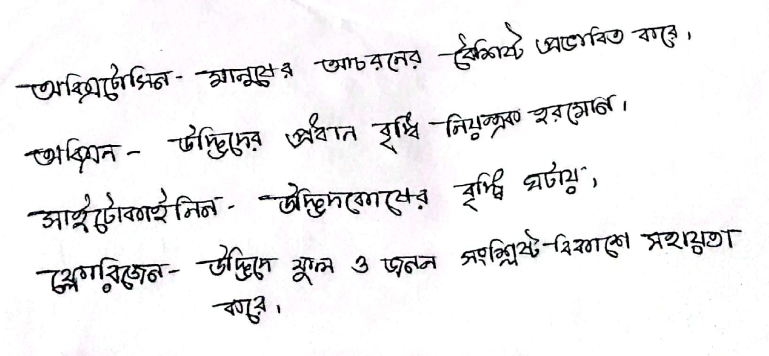 অক্সিটোসিন - মানুষের আচরনের বৈশিষ্ট প্রভাবিত করে।
অক্সিন - উদ্ভিদের প্রধান বৃদ্ধি নিয়ন্ত্রক হরমোন।
সাইটোকাইনিন - উদ্ভিদকোষের বৃদ্ধি ঘটায়।
ফ্লোরিজেন - উদ্ভিদে ফুল ও জনন সংশ্লিষ্ট বিকাশে সহায়তা
করে।